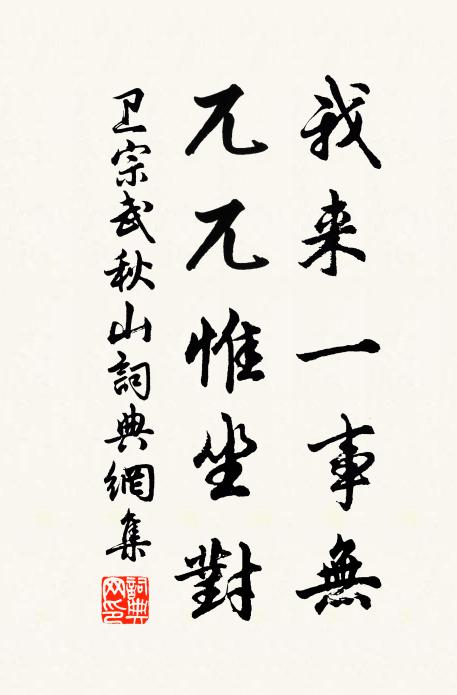 我来一事無
兀兀惟坐對
卫宗武秋山詞典網集
詞典网印